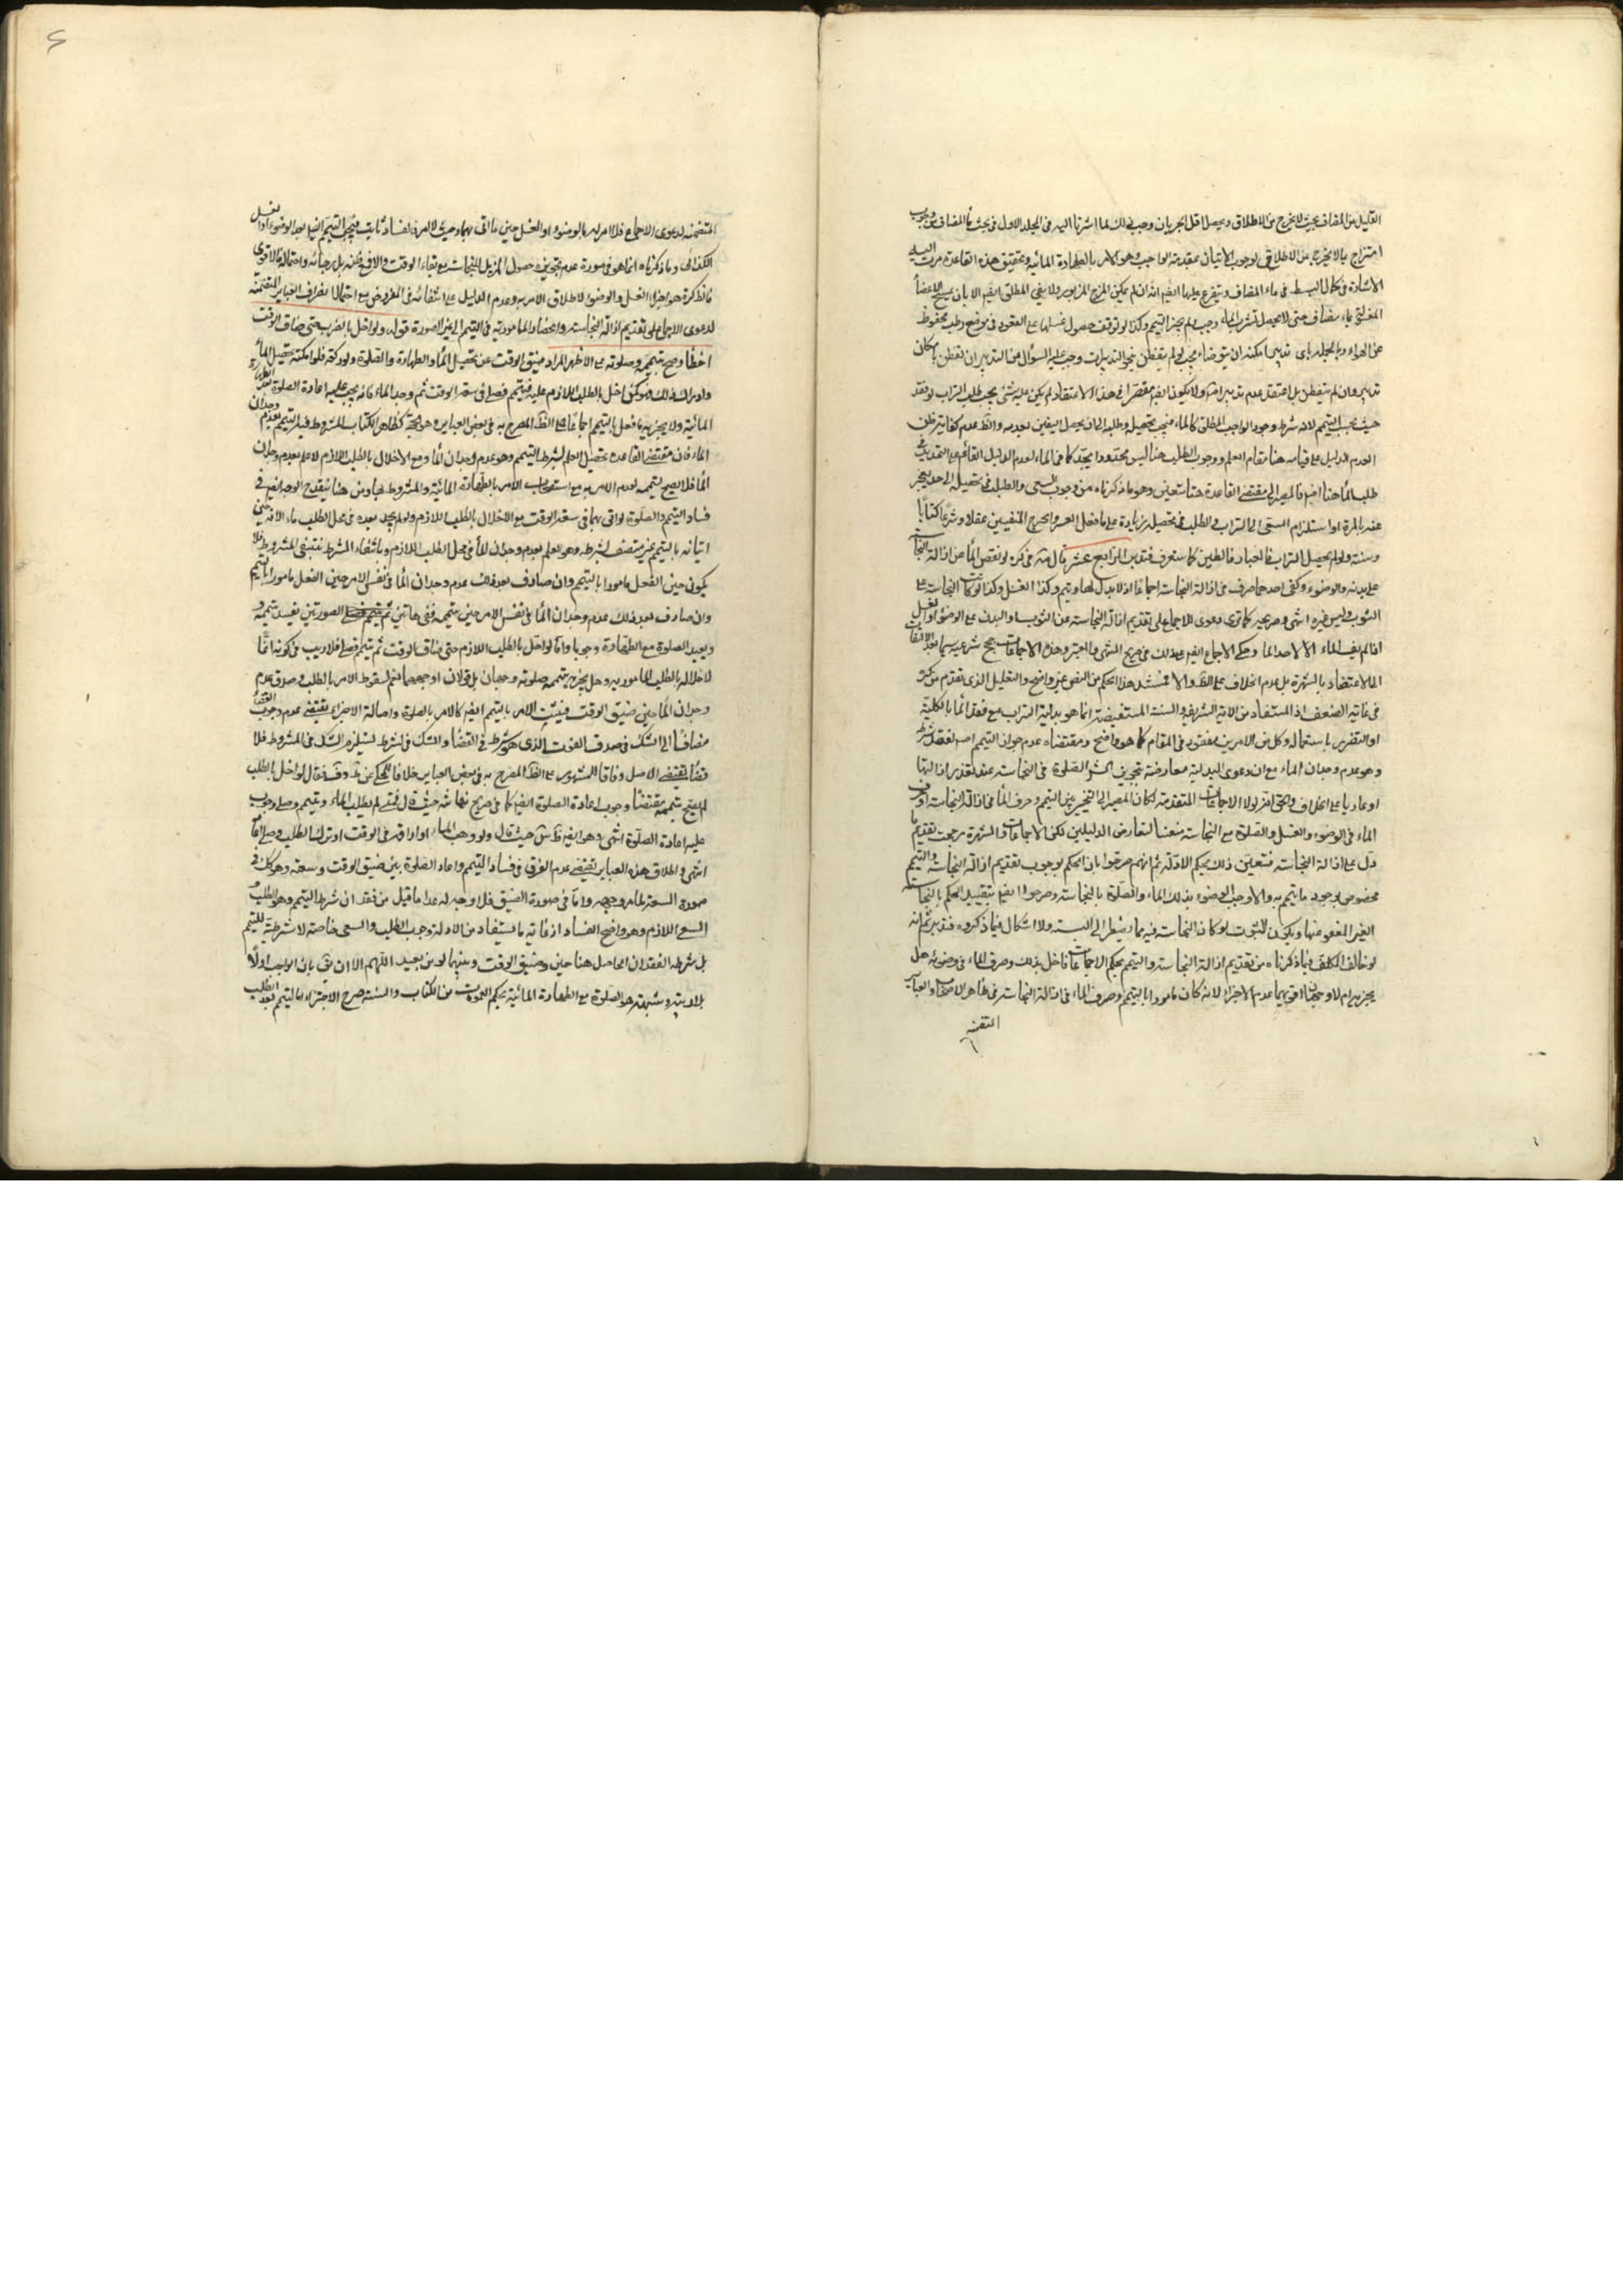 القليل من المضاف بحيث لا يخرج عن الاطلاق ويحصل اقل الجريان وجب ذلك لما اشرنا اليه في المجلد الاول في بحث المضاف من وجوب
امتزاج بالا يخرج عن الاطلاق لوجوب الاتيان بمقدمة الواجب وهو الامر بالطهارة المائية وتحقيق هذه القاعدة مرت اليه
الاشارة في كمال البسط في ماء المضاف ويتفرع عليها ايضا انه ان لم يمكن المزج المزبور ولا يفي المطلق ايضا الا بان يمسح الاعضاء
المغسلة بماء مضاف حتى لا يحصل تشرب الماء وجب ولم يجز التيمم وكذا لو توقف حصول غسلها على القعود في موضع رطب محفوظ
عن الهواء وبالجملة باى تدبير امكنه ان يتوضاء يجب ولو لم يتفطن بنحو التدبيرات وجب عليه السؤال من التدبير ان تفطن بامكان
تدبير وان لم يتفطن بل اعتقد عدم تدبير اخر ولا يكون ايضا مقصرا في هذا الاعتقاد لم يكن عليه شئ يجب طلب التراب لو فقد
حيث يجب التيمم لانه شرط وجود الواجب المطلق كالماء فيجب تحصيله وطلبه الى ان يحصل اليقين بعدمه والظ عدم كفاية ظن
العدم الدليل على قيامه هنا مقام العلم ووجوب الطلب هنا ليس محدودا بحد كما في الماء لعدم الدليل القائم على التحديد في
طلب الماء هنا ايضا فالمصير الى مقتضى القاعدة هنا متعين وهو ما ذكرناه من وجوب السعى والطلب في تحصيله الى حد يعجز
عنه بالمرة او استلزام السعى الى التراب في الطلب في تحصيله زيادة على ما فعل العسر والحرج المنفيين عقلا وشرعا كتابا
وسنة ولو لم يحصل التراب فالغبار فالطين كما ستعرف فتدبر الرابع عشر قال في كره لو نقص الماء عن ازالة النجاسة
على بدنه والوضوء وكفى احدهما صرف في ازالة النجاسة اجماعا اذ لا بدل لها ويتيمم وكذا الغسل وكذا لو كانت النجاسة على
الثوب وليس غيره انتهى وصريحه كما ترى دعوى الاجماع على تقديم ازالة النجاسة عن الثوب والبدن على الوضوء او الغسل
اذا لم يف الماء الا لاحدهما وحكى الاجماع ايضا على ذلك في صريح المنتهى والمعتبر وهذه الاجماعات حجج شرعية سيما بعد الالتفات
الى الاعتضاد بالشهرة بل عدم الخلاف على الظ والا فمستند هذا الحكم من النص غير واضح والتعليل الذي تقدم من كره
في غاية الضعف اذ المستفاد من الاية الشريفة والسنة المستفيضة انما هو بدلية التراب مع فقد الماء بالكلية
او التضرر باستعماله وكل من الامرين مفقود في المقام كما هو واضح ومقتضاه عدم جواز التيمم اصلا لفقد شرطه
وهو عدم وجدان الماء مع ان دعوى البدلية معارضة بتجويز الشرع الصلوة في النجاسة عند تعذر ازالتها
او عاريا على الخلاف والحق انه لولا الاجماعات المتقدمة لكان المصير الى التخيير بين التيمم وصرف الماء في ازالة النجاسة او صرف
الماء في الوضوء والغسل والصلوة مع النجاسة متعينا لتعارض الدليلين لكن الاجماعات والشهرة رجحت تقديم ما
دل على ازالة النجاسة فتعين ذلك بحكم الادلة ثم انهم صرحوا بان الحكم بوجوب تقديم ازالة النجاسة والتيمم
مخصوص بوجود ما يتيمم به والا وجب الوضوء بذلك الماء والصلوة بالنجاسة وصرحوا ايضا بتقييد الحكم بالنجاسة
الغير المعفو عنها وبكون الثوب لو كان النجاسة فيه مما يضطر الى لبسه ولا اشكال فيما ذكروه فتدبر ثم انه
لو خالف المكلف فيما ذكرناه من تقديم ازالة النجاسة والتيمم بحكم الاجماعات فاخل بذلك وصرف الماء في وضوئه هل
يجزيه ام لا وجهان اقويهما عدم الاجزاء لانه كان مامورا بالتيمم وصرف الماء في ازالة النجاسة في ظاهر الاصحاب والعبائر
المتضمنة
المتضمنة لدعوى الاجماع فلا امر له بالوضوء او الغسل حين ما اتى بهما وحيث لا امر فالفساد ثابت فيجب التيمم ايضا بعد الوضوء او الغسل
الكذائى وما ذكرناه انما هو في صورة عدم تجويزه حصول المزيل للنجاسة مع بقاء الوقت والا في ظنه بل رجائه واحتماله فالاقوى
كما تظ كره هو اجزاء الغسل والوضوء لاطلاق الامر به وعدم الدليل على انتفائه في المفروض مع احتمال انصراف العبائر المتضمنة
لدعوى الاجماع على تقديم ازالة النجاسة وانحصار المامور به في التيمم الى غير الصورة قوله ولو اخل بالضرب حتى ضاق الوقت
اخطأ وصح تيممه وصلوته على الاظهر المراد ضيق الوقت عن تحصيل الماء والطهارة والصلوة ولو ركعة فلو امكنه تحصيل الماء
وادراك ذلك ولكن اخل بالطلب اللازم عليه فتيمم فصلى في سعة الوقت ثم وجد الماء فانه يجب عليه اعادة الصلوة بعد الطهارة
المائية ولا يجزيه ما فعل بالتيمم اجماعا على الظ المصرح به في بعض العبائر وهو الحجة كظاهر الكتاب المشروط فيه التيمم بعدم وجدان
الماء فان مقتضى القاعدة تحصيل العلم لشرط التيمم وهو عدم وجدان الماء ومع الاخلال بالطلب اللازم لا علم بعدم وجدان
الماء فلا يصح تيممه لعدم الامر به مع استصحاب الامر بالطهارة المائية والمشروط بها ومن هنا ينقدح الوجه ايضا في
فساد التيمم والصلوة لو اتى بهما في سعة الوقت مع الاخلال بالطلب اللازم ولو لم يجد بعده في محل الطلب ماء لانه حين
اتيانه بالتيمم غير متصف بشرطه وهو العلم بعدم وجدان الماء في محل الطلب اللازم وبانتفاء الشرط ينتفى المشروط فلا
يكون حين الفعل مامورا بالتيمم وان صادف بعد ذلك عدم وجدان الماء في نفس الامر حين الفعل مامورا بالتيمم
وان صادف بعد ذلك عدم وجدان الماء في نفس الامر حين تيممه ففي هاتين الصورتين يفسد تيممه
ويعيد الصلوة مع الطهارة وجوبا واما لو اخل بالطلب اللازم حتى ضاق الوقت ثم تيمم فصلى فلا ريب في كونه اثما
لاخلاله بالطلب المامور به وهل يجزى تيممه وصلوته وجهان بل قولان اوجههما نعم لسقوط الامر بالطلب وصدق عدم
وجدان الماء حين ضيق الوقت فيثبت الامر بالتيمم ايضا كالامر بالصلوة واصالة الاجزاء يقتضى عدم وجوب القضاء
مضافا الى الشك في صدق الفوت الذي هو شرط في القضاء والشك في الشرط يستلزم الشك في المشروط فلا
قضاء بمقتضى الاصل وفاقا للمشهور على الظ المصرح به في بعض العبائر خلافا للمحكى عن ط وف فقال لو اخل بالطلب
لم يصح تيممه مقتضاه وجوب اعادة الصلوة ايضا كما في صريح نهاية حيث قال فمتى لم يطلب الماء وتيمم وصلى وجب
عليه اعادة الصلوة انتهى وهو ايضا ظ س حيث قال ولو وهب الماء او اراقه في الوقت او ترك الطلب وصلى اعاد
انتهى واطلاق هذه العبائر يقتضى عدم الفرق في فساد التيمم واعادة الصلوة بين ضيق الوقت وسعته وهو كك في
صورة السعة لما مر وجهه واما في صورة الضيق فلا وجه له عدا ما قيل من فقدان شرط التيمم وهو الطلب و
السعى اللازم وهو واضح الفساد اذ غاية ما يستفاد من الادلة وجوب الطلب والسعى خاصة لا شرطيته للتيمم
بل شرطه الفقدان الحاصل هنا حين وضيق الوقت وبينهما لوبن بعيد اللهم الا ان يق بان الواجب اولا
بلا ريبة وشبهة هو الصلوة مع الطهارة المائية بحكم العمومات من الكتاب والسنة خرج الاجتزاء بالتيمم بعد الطلب